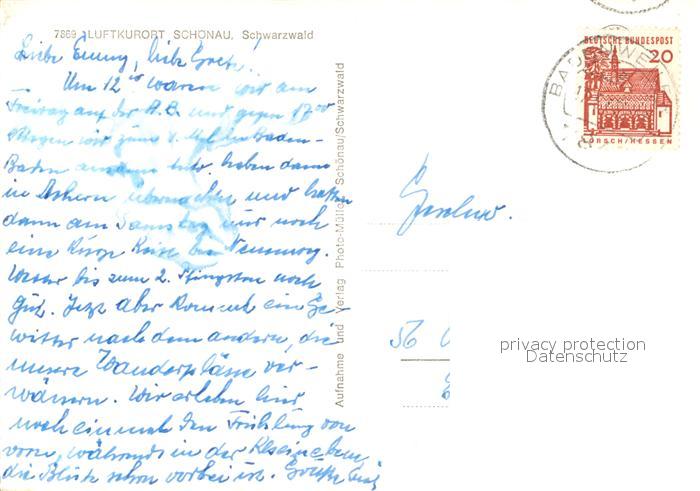 7869 LUFTKURORT SCHÖNAU, Schwarzwald
Liebe Emmy, liebe Grete!
Um 12 waren wir am
Freitag auf der A.B. und gegen 17
bogen wir zum 1. Baden-
Baden haben dann
in Achern übernachtet und hatten
dann am Samstag nur noch
eine kurze Reise bis
Wetter bis zum 2. Pfingsten noch
gut. Jetzt aber kommt ein Ge-
witter nach dem andern, die
unsere Wanderpläne ver-
wässern. Wir erleben hier
noch einmal den Frühling von
vorn, während in der Rheinebene
die Blüte schon vorbei ist. Grüße
Aufnahme und Verlag Photo-Müller Schönau/Schwarzwald
DEUTSCHE BUNDESPOST
20
LORSCH/HESSEN
BADENWE
56
privacy protection
Datenschutz